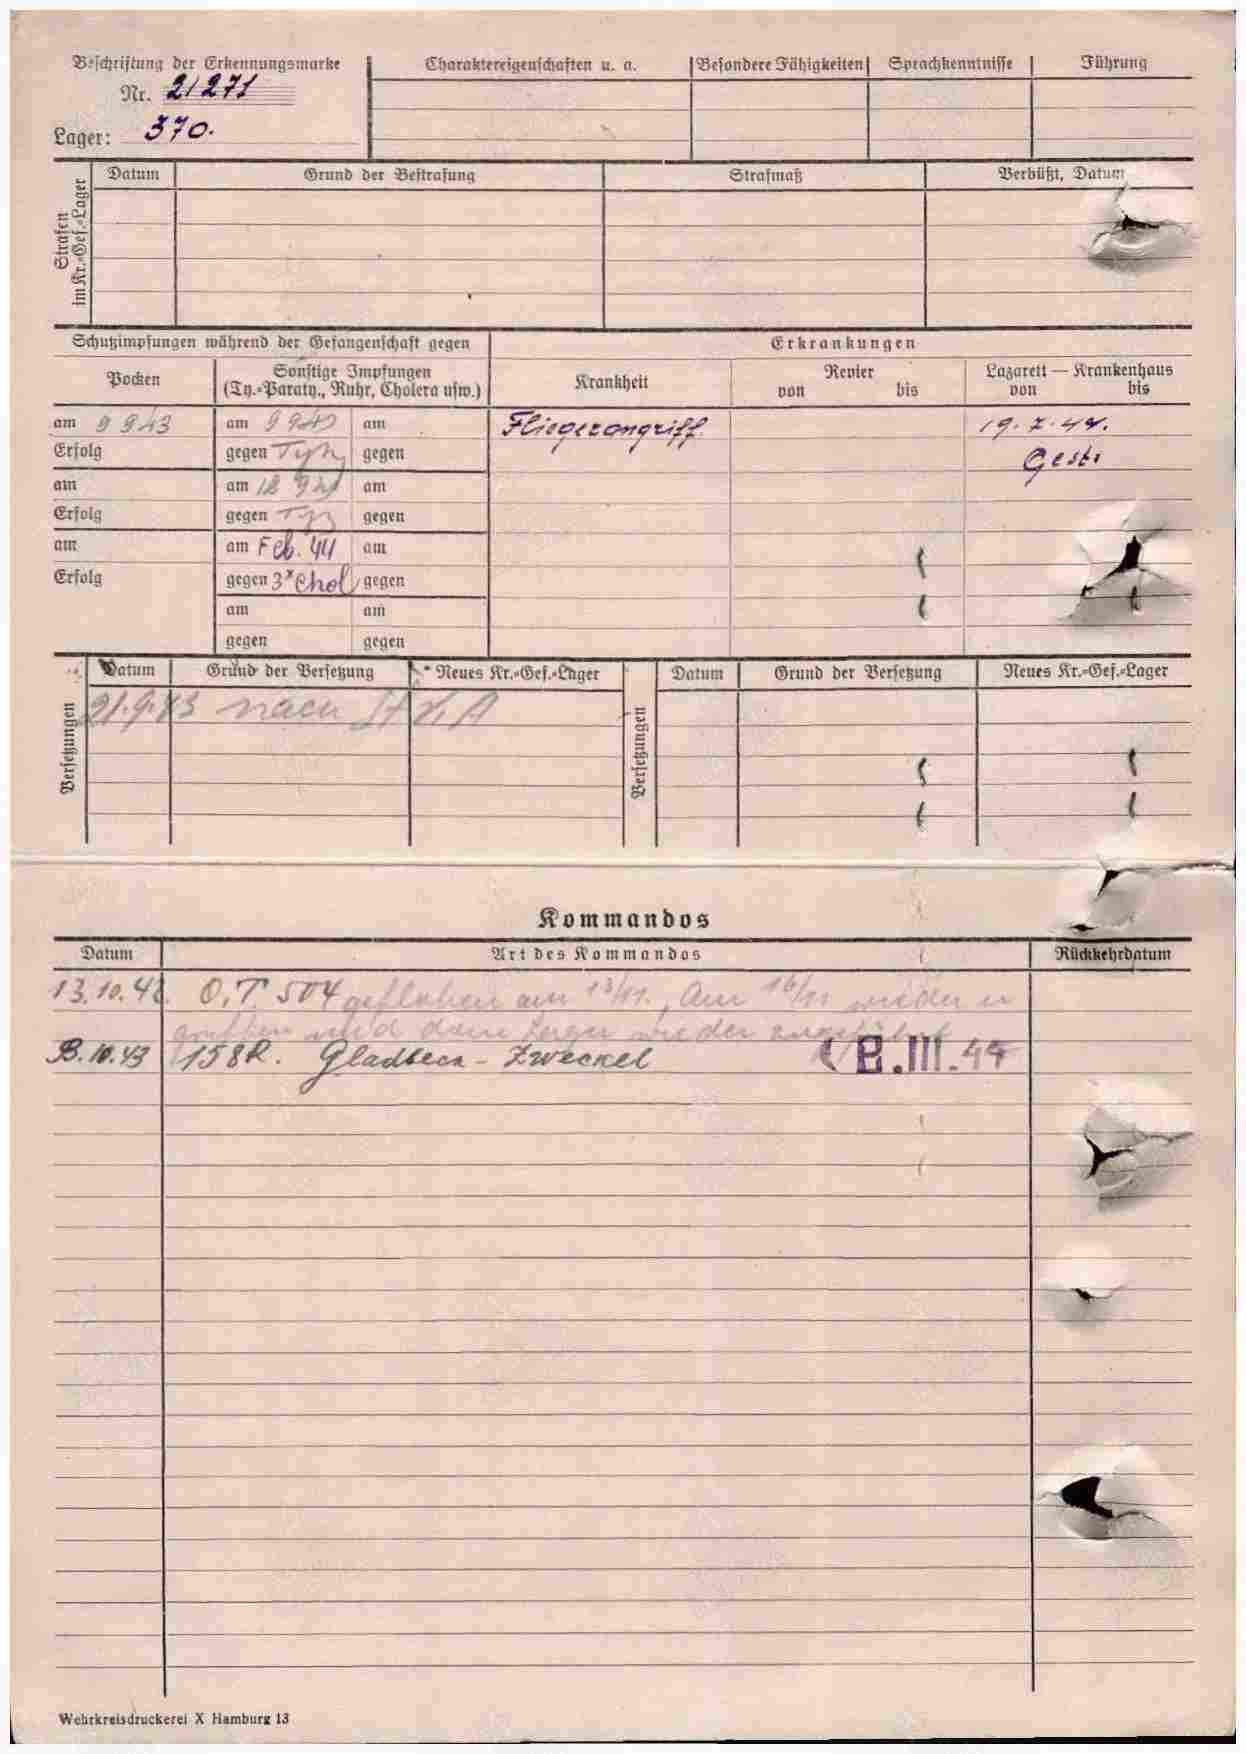 Beschriftung der Erkennungsmarke
Nr. 21271
Lager: 370.
Charaktereigenschaften u. a. Besondere Fähigkeiten Sprachkenntnisse Führung
Strafen im Kr.=Gef.=Lager
Datum Grund der Bestrafung Strafmaß Verbüßt, Datum
Schutzimpfungen während der Gefangenschaft gegen
Erkrankungen
Pocken
Sonstige Impfungen
(Ty.=Paraty., Ruhr, Cholera usw.)
Krankheit
Revier
von bis
Lazarett — Krankenhaus
von bis
am 9 9 43 am 9 9 43 am
Fliegerangriff. 19. 7. 44.
Erfolg gegen gegen
Gest.
am am am
Erfolg gegen gegen
am am Feb. 44 am
Erfolg gegen 3x Chol gegen
am am
gegen gegen
Versetzungen
Datum Grund der Versetzung Neues Kr.=Gef.=Lager
21.9.43 nach VI A
Versetzungen
Datum Grund der Versetzung Neues Kr.=Gef.=Lager
Kommandos
Datum Art des Kommandos Rückkehrdatum
13.10.42. O.T. 504 geflohen am 13/11. Am 16/11 wieder er
griffen und dem Lager wieder zugeführt
.10.43 158R. Gladbeck - Zweckel .III.44
Wehrkreisdruckerei X Hamburg 13